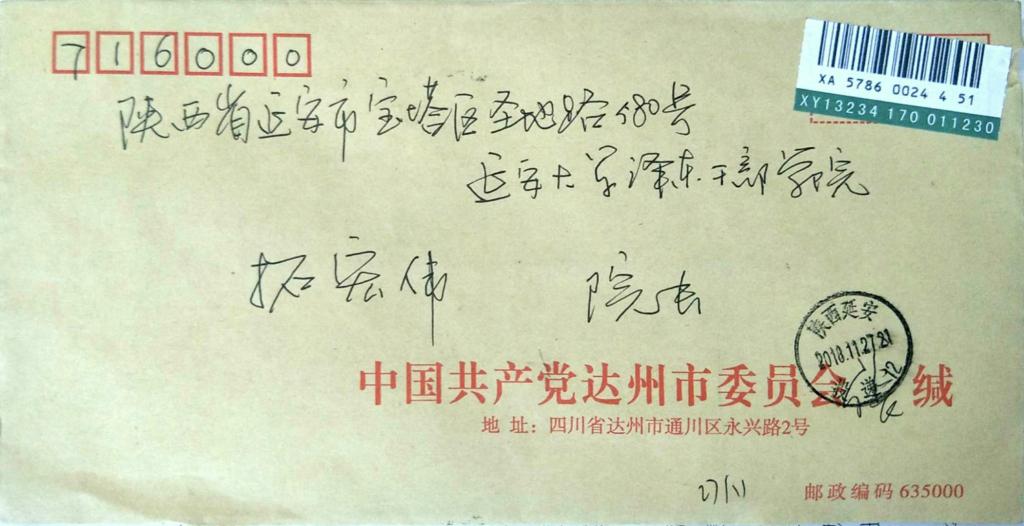 716000
XA 5786 0024 4 51
XY13234 170 011230
陕西省延安市宝塔区圣地路580号
延安大学泽东干部学院
拓宏伟 院长
陕西延安
2018.11.27.21
中国共产党达州市委员会 缄
地 址：四川省达州市通川区永兴路2号
27/11
邮政编码 635000